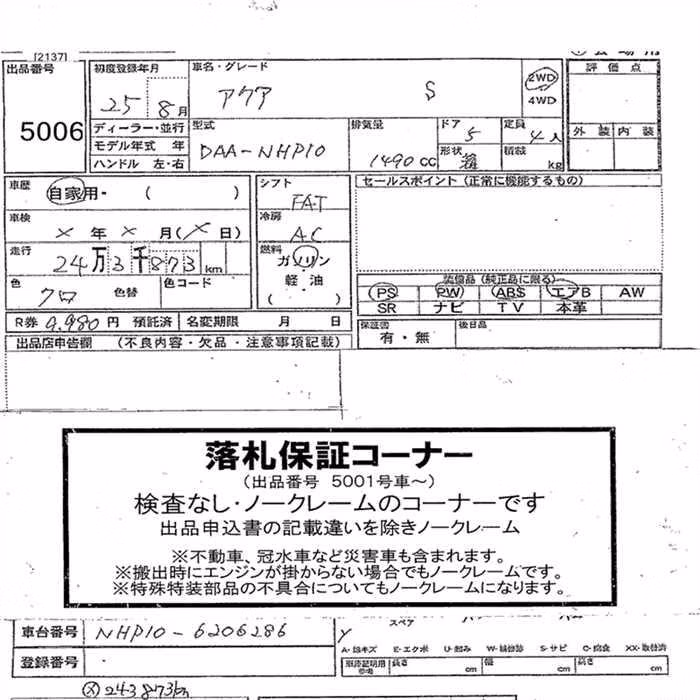 [2137]
出品番号
5006
初度登録年月
25 8月
車名・グレード
アクア S
2WD
4WD
評価点
外装 内装
ディーラー・並行
モデル年式 年
ハンドル 左・右
型式
DAA-NHP10
排気量
1490 CC
ドア
5
定員
4人
形状
積載
kg
車歴
自家用・( )
車検
× 年 × 月(× 日)
走行
24万3千873 km
色
クロ
色替
色コード
シフト
FAT
冷房
AC
燃料
ガソリン
軽・油
( )
セールスポイント(正常に機能するもの)
(純正品に限る)
PS PW ABS エアB AW
SR ナビ TV 本革
保証図
有・無
後日品
R券 9,980 円 預託済 名変期限 月 日
出品店申告欄 (不良内容・欠品・注意事項記載)
落札保証コーナー
(出品番号 5001号車~)
検査なし・ノークレームのコーナーです
出品申込書の記載違いを除きノークレーム
※不動車、冠水車など災害車も含まれます。
※搬出時にエンジンが掛からない場合でもノークレームです。
※特殊特装部品の不具合についてもノークレームになります。
車台番号
NHP10-6206286
登録番号
スペア
A-線キズ E-エクボ U-凹み W-補修跡 S-サビ C-腐食 XX-取替済
車庫証明用
参考
長さ cm 幅 cm 高さ cm
Ⓧ243873km